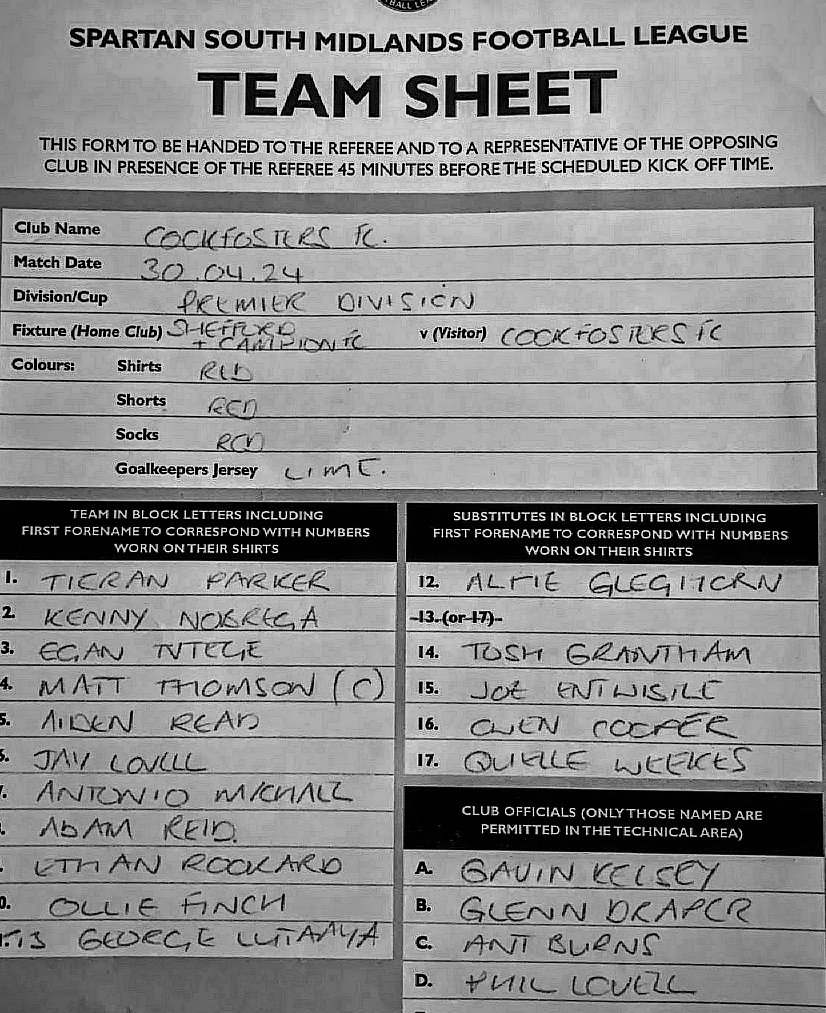 SPARTAN SOUTH MIDLANDS FOOTBALL LEAGUE
TEAM SHEET
THIS FORM TO BE HANDED TO THE REFEREE AND TO A REPRESENTATIVE OF THE OPPOSING
CLUB IN PRESENCE OF THE REFEREE 45 MINUTES BEFORE THE SCHEDULED KICK OFF TIME.
Club Name COCKFOSTERS FC.
Match Date 30.04.24
Division/Cup PREMIER DIVISION
Fixture (Home Club) SHEFFORD + CAMPION FC v (Visitor) COCKFOSTERS FC
Colours: Shirts RED
Shorts RED
Socks RED
Goalkeepers Jersey LIME.
TEAM IN BLOCK LETTERS INCLUDING
FIRST FORENAME TO CORRESPOND WITH NUMBERS
WORN ON THEIR SHIRTS
1. TIERAN PARKER
2. KENNY NOBREGA
3. EGAN
4. MATT THOMSON (C)
5. AIDEN READ
6. JAY LOVELL
7. ANTONIO MICHAEL
ADAM REID.
ETHAN ROCKARD
0. OLLIE FINCH
13 GEORGE LUTAAYA
SUBSTITUTES IN BLOCK LETTERS INCLUDING
FIRST FORENAME TO CORRESPOND WITH NUMBERS
WORN ON THEIR SHIRTS
12. ALFIE GLEGHORN
13. (or 17)
14. TOSH GRANTHAM
15. JOE ENTWISILE
16. OWEN COOPER
17. QUELLE WEEKES
CLUB OFFICIALS (ONLY THOSE NAMED ARE
PERMITTED IN THE TECHNICAL AREA)
A. GAVIN KELSEY
B. GLENN DRAPER
C. ANT BURNS
D. PHIL LOVELL